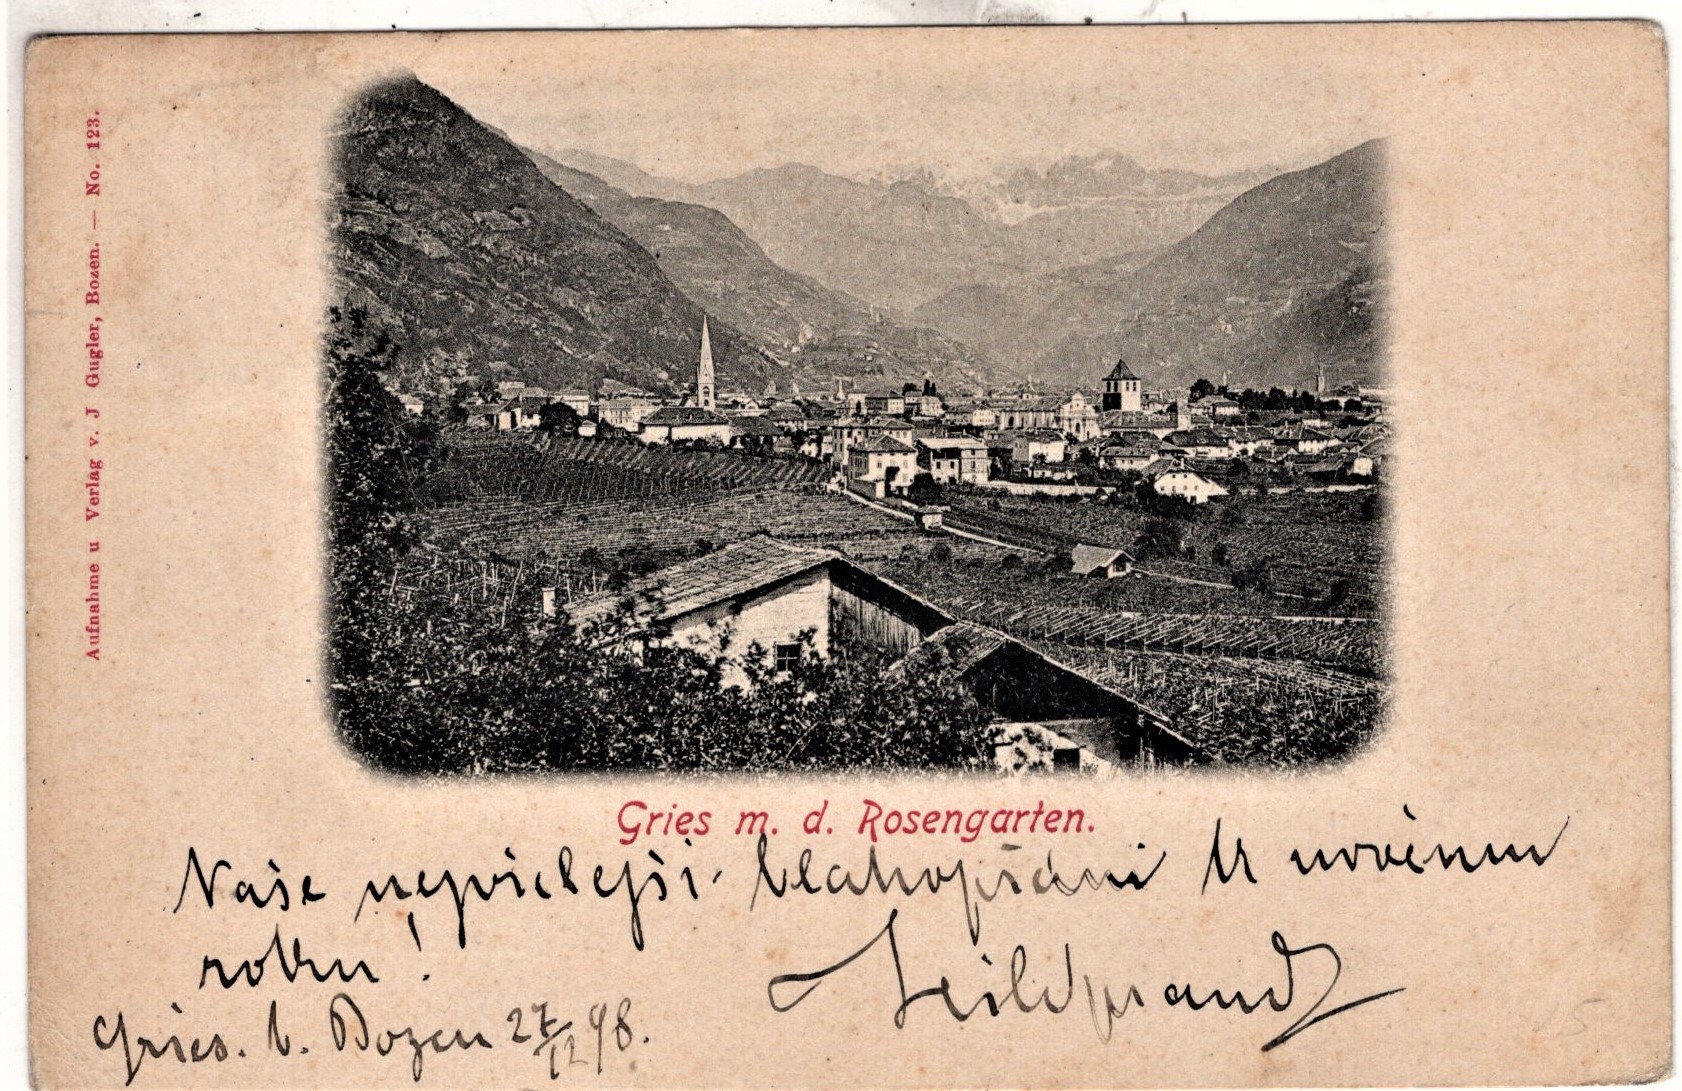 Aufnahme u Verlag v. J Gugler, Bozen. — No. 123.
Gries m. d. Rosengarten.
Naše nejvřelejší blahopřání k novému
roku!
Gries. b. Bozen 27/12 98.